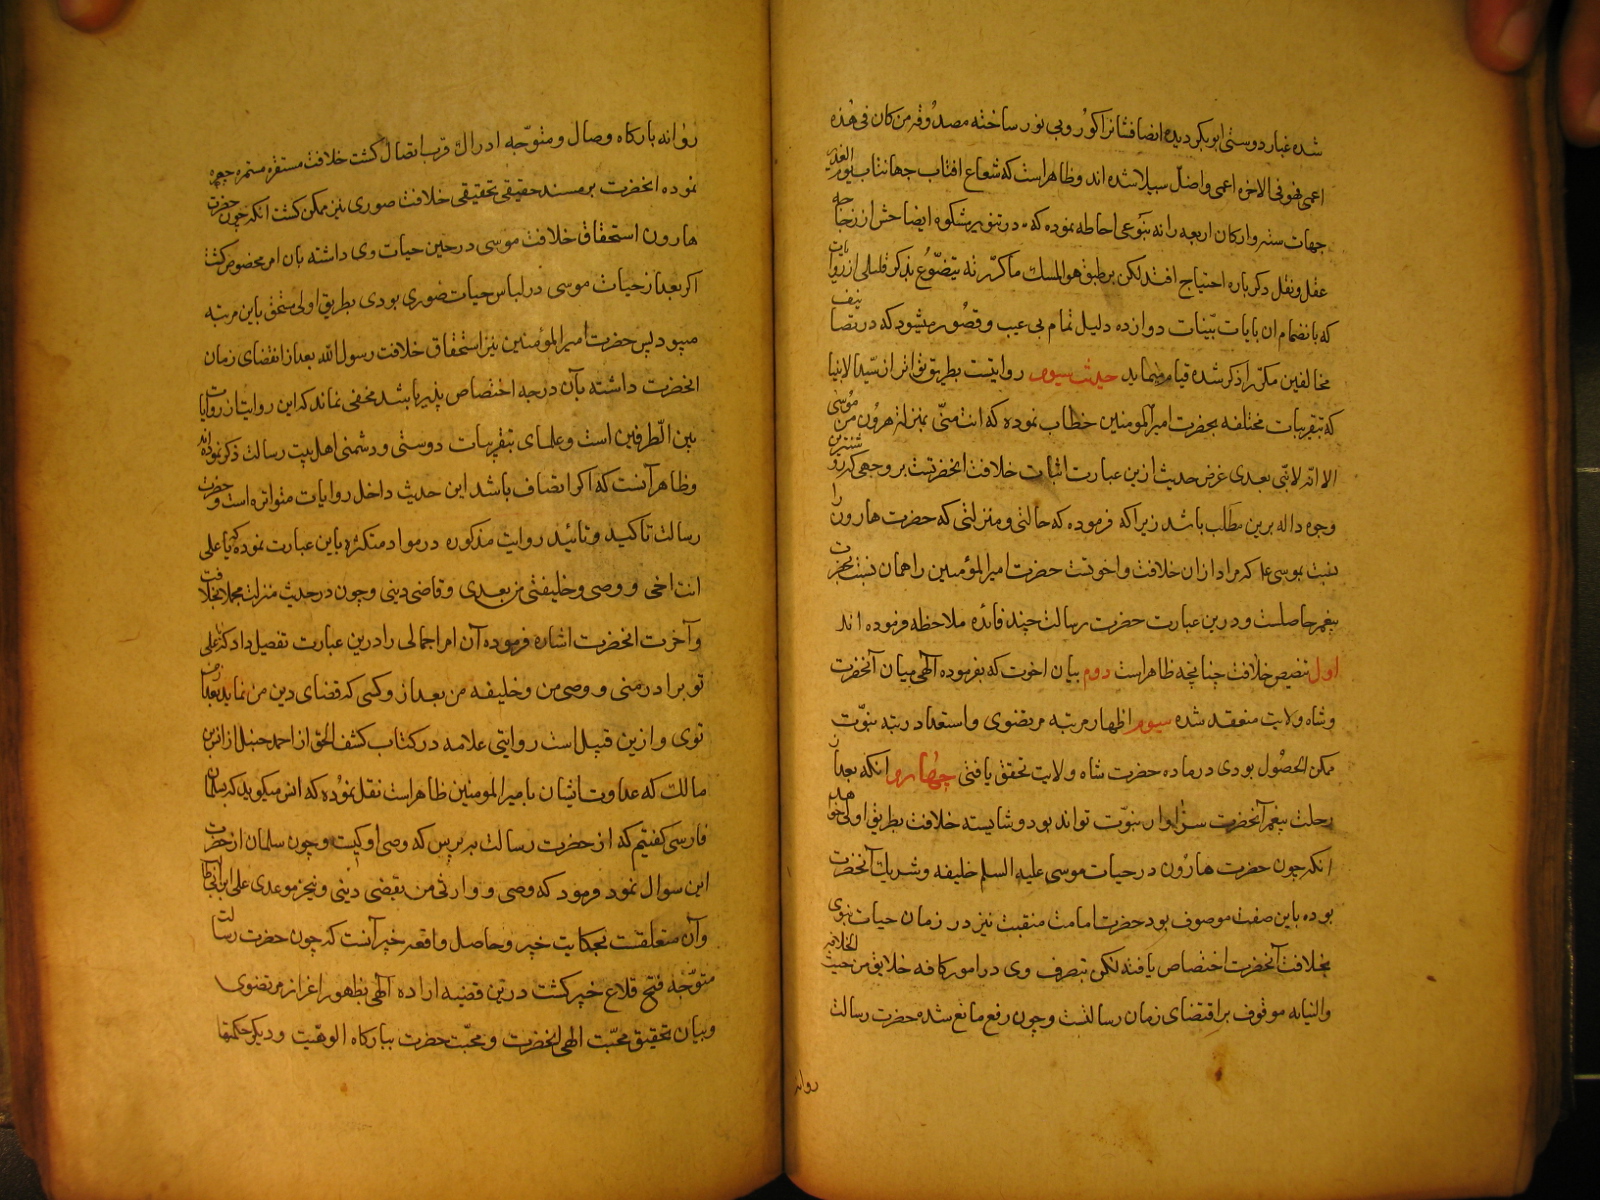 شده غبار دوستی ابوبکر دیده انصافشانرا کور و بی نور ساخته مصدوقه من کان فی هذه
اعمی فهو فی الاخره اعمی واضل سبیلا شده اند وظاهر است که شعاع افتاب جهانتاب یوم الغدیر
جهات سته وارکان اربعه را نه بنوعی احاطه نموده که در تنویر مشکوه ایضاحش از زجاجه
عقل ونقل دکر باره احتیاج افتد لکن بر طبق هو المسک ما کررته یتضوع بذکر قلیلی از روایات
که بانضمام ان بایات بینات دوازده دلیل تمام بی عیب وقصور میشود که در تصانیف
مخالفین مکرر ذکر شده قیام مینماید حدیث سیوم روایتست بطریق تواتر از سید الانبیا
که بتقریبات مختلفه بحضرت امیرالمومنین خطاب نموده که انت منی بمنزله هرون من موسی
الا انه لا نبی بعدی غرض حدیث ازین عبارت اثبات خلافت انحضرتست بر وجهی که
وجوه داله برین مطلب باشد زیرا که فرموده که حالتی ومنزلتی که حضرت هارون را
نسبت بموسی علیه که مراد ازان خلافت واخوتست حضرت امیرالمؤمنین را همان نسبت بحضرت
پیغمبر حاصلست ودرین عبارت حضرت رسالت چند فائده ملاحظه فرموده اند
اول تنصیص خلافت چنانچه ظاهر است دوم بیان اخوت که بفرموده الهی میان آنحضرت
وشاه ولایت منعقد شده سیوم اظهار مرتبه مرتضوی واستعداد رتبه نبوت
ممکن الحصول بودی در ماده حضرت شاه ولایت تحقق یافتی چهارم انکه بعد از
رحلت پیغمبر آنحضرت سزاوار نبوت تواند بود وشایسته خلافت بطریق اولی خواهد
انکه چون حضرت هارون در حیات موسی علیه السلم خلیفه وشریک آنحضرت
بوده باین صفت موصوف بود حضرت امامت منقبت نیز در زمان حیات نبوی
بخلافت آنحضرت اختصاص یافته لکن تصرف وی در امور کافه خلایق من حیث الخلافه
والنیابه موقوف بر اقتضای زمان رسالتست وچون رفع مانع شده حضرت رسالت
روانه
روانه بارکاه وصال ومتوجه ادراک قرب اتصال کشت خلافت مستقره مستمره
نموده انحضرت بر مسند حقیقی تحقیقی خلافت صوری نیز ممکن کشت انکه چون حضرت
هارون استحقاق خلافت موسی در حین حیات وی داشته بان امر مخصوص کشت
اکر بعد از حیات موسی در لباس حیات صوری بودی بطریق اولی مستحق باین مرتبه
میبود پس حضرت امیرالمؤمنین نیز استحقاق خلافت رسول الله بعد از انقضای زمان
انحضرت داشته بآن درجه اختصاص پذیر باشد مخفی نماند که این روایت از روایات
بین الطرفین است وعلمای بتقریبات دوستی ودشمنی اهل بیت رسالت ذکر نموده اند
وظاهر آنست که اکر انصاف باشد این حدیث داخل روایات متواتره است و حضرت
رسالت تاکید وتائید روایت مذکوره در مواد متکثره باین عبارت نموده که یا علی
انت اخی ووصی وخلیفتی من بعدی وقاضی دینی وچون در حدیث منزلت مجملا بخلافت
واخوت انحضرت اشاره فرموده آن امر اجمالی را درین عبارت تفصیل داد که ای علی
تو برادر منی ووصی من وخلیفه من بعد از من وکسی که قضای دین من نماید بعد از من
توی وازین قبیل است روایتی علامه در کتاب کشف الحق از احمد حنبل از انس بن
مالک که عداوت ایشان بامیرالمومنین ظاهر است نقل نموده که انس میکوید که بسلمان
فارسی کفتیم که از حضرت رسالت بپرس که وصی او کیست وچون سلمان از حضرت
این سوال نمود فرمود که وصی ووارثی من یقضی دینی وینجز موعدی علی ابن ابیطالب
وآن متعلقست بحکایت خیبر وحاصل واقعه خیبر آنست که چون حضرت رسالت
متوجه فتح قلاع خیبر کشت درین قضیه اراده الهی بظهور اعزاز مرتضوی
وبیان تحقیق محبت الهی انحضرت ومحبت حضرت ببارکاه الوهیت ودیکر حکمتها